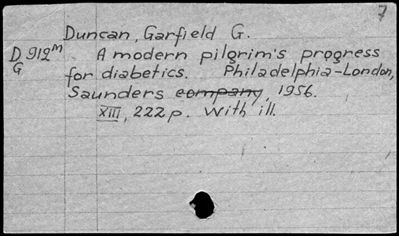 7
Duncan, Garfield G.
D 912m A modern pilgrim's progress
G for diabetics. Philadelphia-London,
Saunders company, 1956.
XIII, 222 p. With ill.